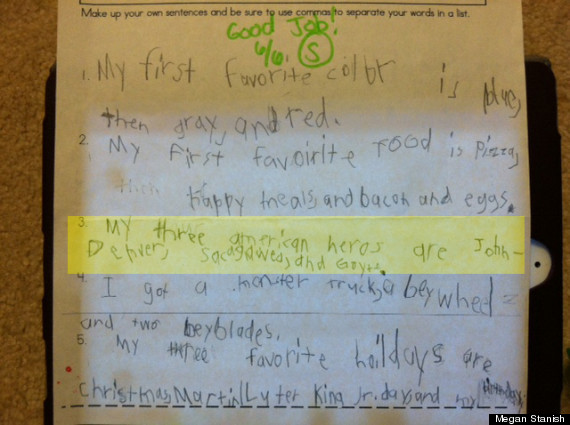 Make up your own sentences and be sure to use commas to separate your words in a list.
Good Job!
6/6 S
1. My first favorite color is blue,
then gray, and red.
2. My first favoirite food is pizza,
then happy meals, and bacon and eggs.
3. My three american heros are John-
Denver, Sacagawea, and
4. I got a monster truck, a bey wheel
and two beyblades.
5. My three favorite hoildays are
Christmas, Martin Luter King Jr. day, and my birthday.
Megan Stanish